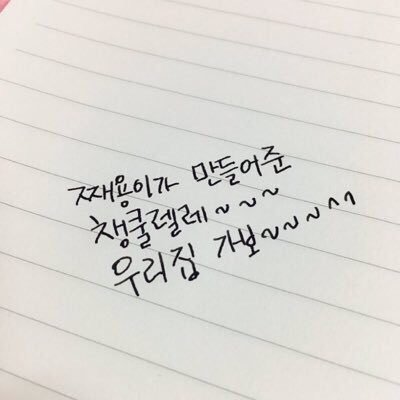 쨰용이가 만들어준
챙쿨렐레~~~
우리집 가보~~~^^